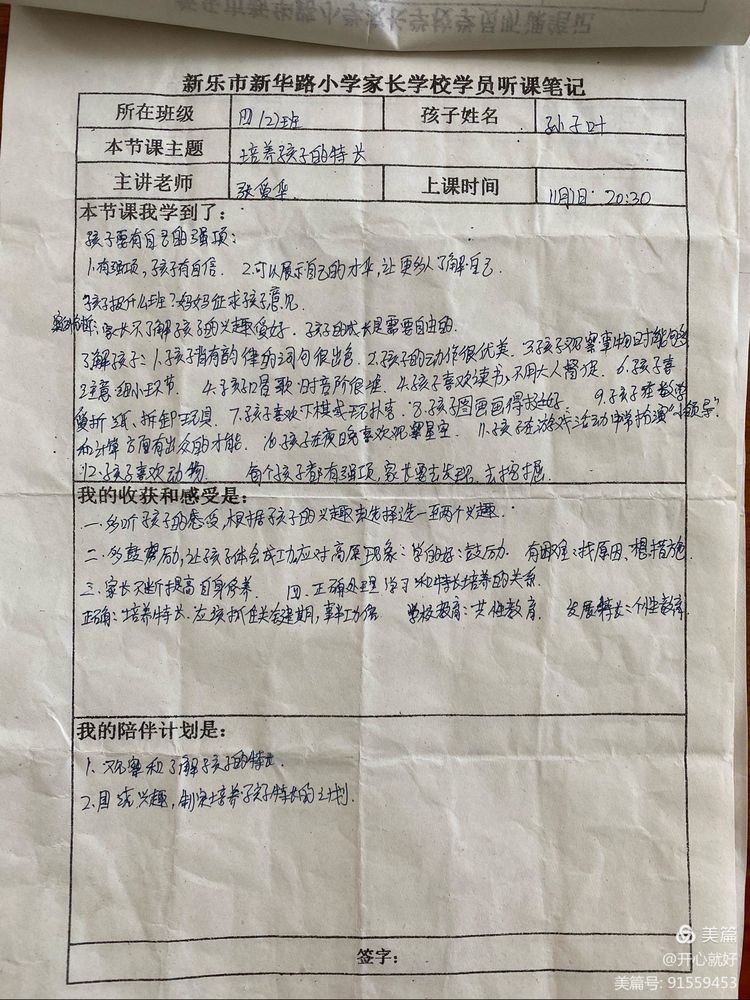 新乐市新华路小学家长学校学员听课笔记
所在班级 四(2)班 孩子姓名 孙子叶
本节课主题 培养孩子的特长
主讲老师 张爱华 上课时间 11月1日 20:30
本节课我学到了：
孩子要有自己的强项：
1.有强项，孩子有自信. 2.可以展示自己的才华，让更多人了解自己.
孩子报什么班？妈妈征求孩子意见.
案例分析：家长不了解孩子的兴趣爱好. 孩子的成长是需要自由的.
了解孩子：1.孩子背有韵律的词句很出色 2.孩子的动作很优美. 3.孩子观察事物时能够
注意细小环节. 4.孩子们冒歌时音阶很准. 4.孩子喜欢读书，不用大人督促. 6.孩子喜
爱折纸、拆卸玩具. 7.孩子喜欢下棋或玩扑克. 8.孩子图画画得挺好. 9.孩子在数学
和计算方面有出众的才能. 10.孩子在夜晚喜欢观察星空. 11.孩子在游戏活动中常扮演“小领导”.
12.孩子喜欢动物. 每个孩子都有强项，家长要去发现，去挖掘.
我的收获和感受是：
一.多听孩子的感受，根据孩子的兴趣来选择选一至两个兴趣.
二.多鼓励，让孩子体会成功.应对高原现象：学的好：鼓励. 有困难：找原因、想措施.
三.家长不断提高自身修养. 四.正确处理学习和特长培养的关系.
正确：培养特长.应该抓住关键期，事半功倍. 学校教育：共性教育. 发展特长：个性教育.
我的陪伴计划是：
1.观察和了解孩子的特长.
2.围绕兴趣，制定培养孩子特长的计划.
签字：
美篇
@开心就好
美篇号: 91559453